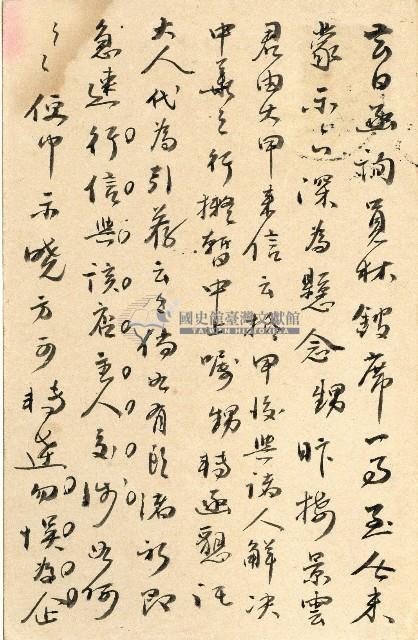 去日函詢員林館席一事至今未
蒙示六深為懸念甥昨接景雲
君由大甲來信云於甲後與諸人解決
中華之行擬暫中止囑甥轉函懇託
大人代為引薦云云倘如有臣諸祈即
急速行信與該店主人交涉如何
之處便中示曉方可轉達勿悞為企
國史館臺灣文獻館
TAIWAN HISTORICA